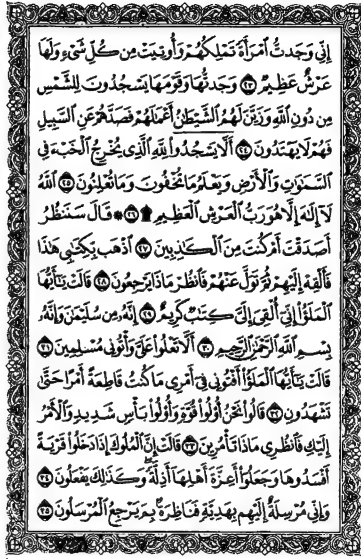 إِنِّي وَجَدتُّ ٱمْرَأَةً تَمْلِكُهُمْ وَأُوتِيَتْ مِن كُلِّ شَيْءٍ وَلَهَا
عَرْشٌ عَظِيمٌ ٢٣ وَجَدتُّهَا وَقَوْمَهَا يَسْجُدُونَ لِلشَّمْسِ
مِن دُونِ ٱللَّهِ وَزَيَّنَ لَهُمُ ٱلشَّيْطَٰنُ أَعْمَٰلَهُمْ فَصَدَّهُمْ عَنِ ٱلسَّبِيلِ
فَهُمْ لَا يَهْتَدُونَ ٢٤ أَلَّا يَسْجُدُوا۟ لِلَّهِ ٱلَّذِي يُخْرِجُ ٱلْخَبْءَ فِي
ٱلسَّمَٰوَٰتِ وَٱلْأَرْضِ وَيَعْلَمُ مَا تُخْفُونَ وَمَا تُعْلِنُونَ ٢٥ ٱللَّهُ
لَآ إِلَٰهَ إِلَّا هُوَ رَبُّ ٱلْعَرْشِ ٱلْعَظِيمِ ۩ ٢٦ ۞ قَالَ سَنَنظُرُ
أَصَدَقْتَ أَمْ كُنتَ مِنَ ٱلْكَٰذِبِينَ ٢٧ ٱذْهَب بِّكِتَٰبِي هَٰذَا
فَأَلْقِهْ إِلَيْهِمْ ثُمَّ تَوَلَّ عَنْهُمْ فَٱنظُرْ مَاذَا يَرْجِعُونَ ٢٨ قَالَتْ يَٰٓأَيُّهَا
ٱلْمَلَؤُا۟ إِنِّيٓ أُلْقِيَ إِلَيَّ كِتَٰبٌ كَرِيمٌ ٢٩ إِنَّهُۥ مِن سُلَيْمَٰنَ وَإِنَّهُۥ
بِسْمِ ٱللَّهِ ٱلرَّحْمَٰنِ ٱلرَّحِيمِ ٣٠ أَلَّا تَعْلُوا۟ عَلَيَّ وَأْتُونِي مُسْلِمِينَ ٣١
قَالَتْ يَٰٓأَيُّهَا ٱلْمَلَؤُا۟ أَفْتُونِي فِيٓ أَمْرِي مَا كُنتُ قَاطِعَةً أَمْرًا حَتَّىٰ
تَشْهَدُونِ ٣٢ قَالُوا۟ نَحْنُ أُو۟لُوا۟ قُوَّةٍ وَأُو۟لُوا۟ بَأْسٍ شَدِيدٍ وَٱلْأَمْرُ
إِلَيْكِ فَٱنظُرِي مَاذَا تَأْمُرِينَ ٣٣ قَالَتْ إِنَّ ٱلْمُلُوكَ إِذَا دَخَلُوا۟ قَرْيَةً
أَفْسَدُوهَا وَجَعَلُوٓا۟ أَعِزَّةَ أَهْلِهَآ أَذِلَّةً ۖ وَكَذَٰلِكَ يَفْعَلُونَ ٣٤
وَإِنِّي مُرْسِلَةٌ إِلَيْهِم بِهَدِيَّةٍ فَنَاظِرَةٌۢ بِمَ يَرْجِعُ ٱلْمُرْسَلُونَ ٣٥